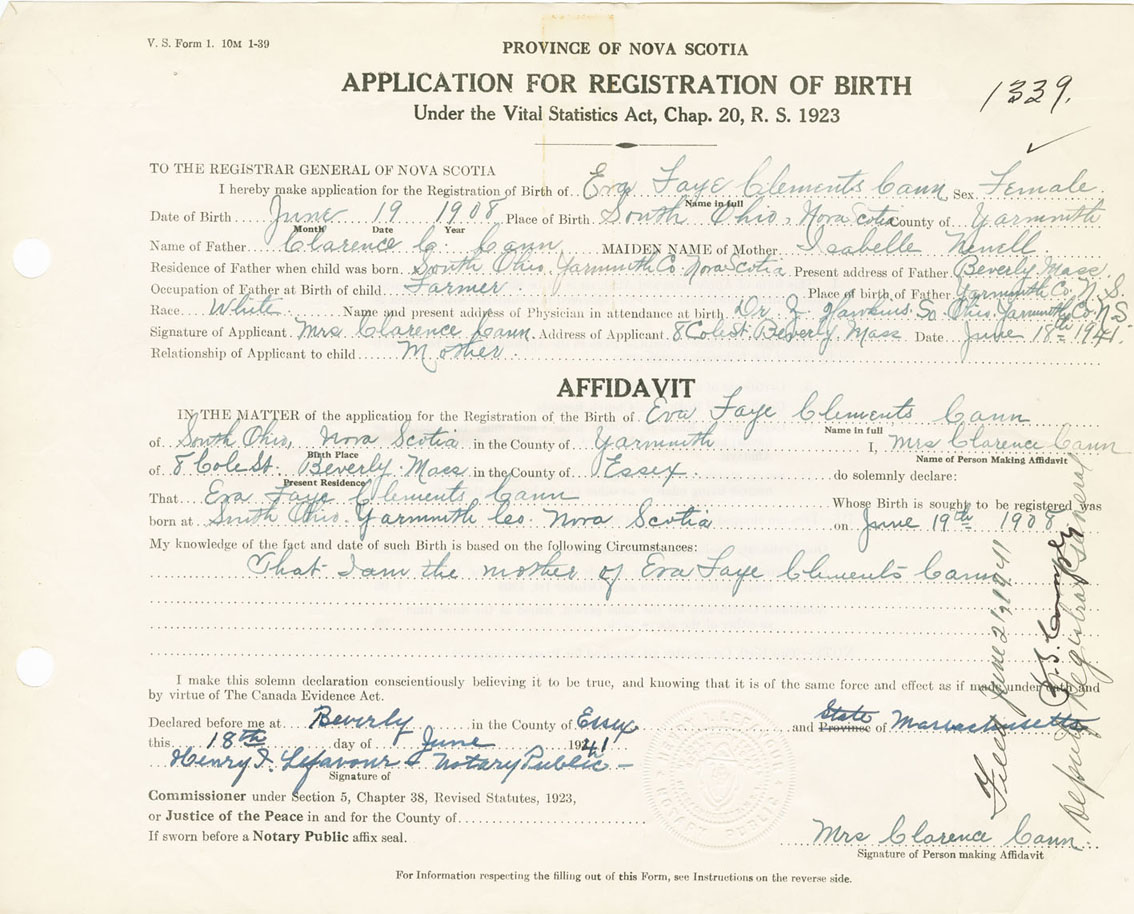 V. S. Form 1. 10M 1-39
PROVINCE OF NOVA SCOTIA
APPLICATION FOR REGISTRATION OF BIRTH
1339.
Under the Vital Statistics Act, Chap. 20, R. S. 1923
TO THE REGISTRAR GENERAL OF NOVA SCOTIA
I hereby make application for the Registration of Birth of Eva Faye Clements Cann Sex Female
Name in full
Date of Birth June 19 1908 Place of Birth South Ohio, Nova Scotia County of Yarmouth
Month Date Year
Name of Father Clarence C. Cann MAIDEN NAME of Mother Isabelle Newell
Residence of Father when child was born. South Ohio, Yarmouth Co. Nova Scotia Present address of Father Beverly Mass.
Occupation of Father at Birth of child Farmer. Place of birth of Father Yarmouth Co. N.S.
Race White Name and present address of Physician in attendance at birth Dr Z Hawkins. So. Ohio. Yarmouth Co. N.S.
Signature of Applicant Mrs. Clarence Cann. Address of Applicant 8 Cole St. Beverly. Mass Date June 18th 1941.
Relationship of Applicant to child Mother.
AFFIDAVIT
IN THE MATTER of the application for the Registration of the Birth of Eva Faye Clements Cann
Name in full
of South Ohio, Nova Scotia in the County of Yarmouth I, Mrs Clarence Cann
Birth Place Name of Person Making Affidavit
of 8 Cole St. Beverly. Mass in the County of Essex. do solemnly declare:
Present Residence
That Eva Faye Clements Cann Whose Birth is sought to be registered was
born at South Ohio. Yarmouth Co. Nova Scotia on June 19th 1908
My knowledge of the fact and date of such Birth is based on the following Circumstances:
That I am the mother of Eva Faye Clements Cann
I make this solemn declaration conscientiously believing it to be true, and knowing that it is of the same force and effect as if made under oath and
by virtue of The Canada Evidence Act.
Declared before me at Beverly in the County of Essex and State Province of Massachusetts
this 18th day of June 1941
Henry I. Lefavour Notary Public
Signature of
Commissioner under Section 5, Chapter 38, Revised Statutes, 1923,
or Justice of the Peace in and for the County of
If sworn before a Notary Public affix seal.
Mrs Clarence Cann.
Signature of Person making Affidavit
For Information respecting the filling out of this Form, see Instructions on the reverse side.
Filed June 21, 1941
Deputy Registrar General
NOTARY PUBLIC